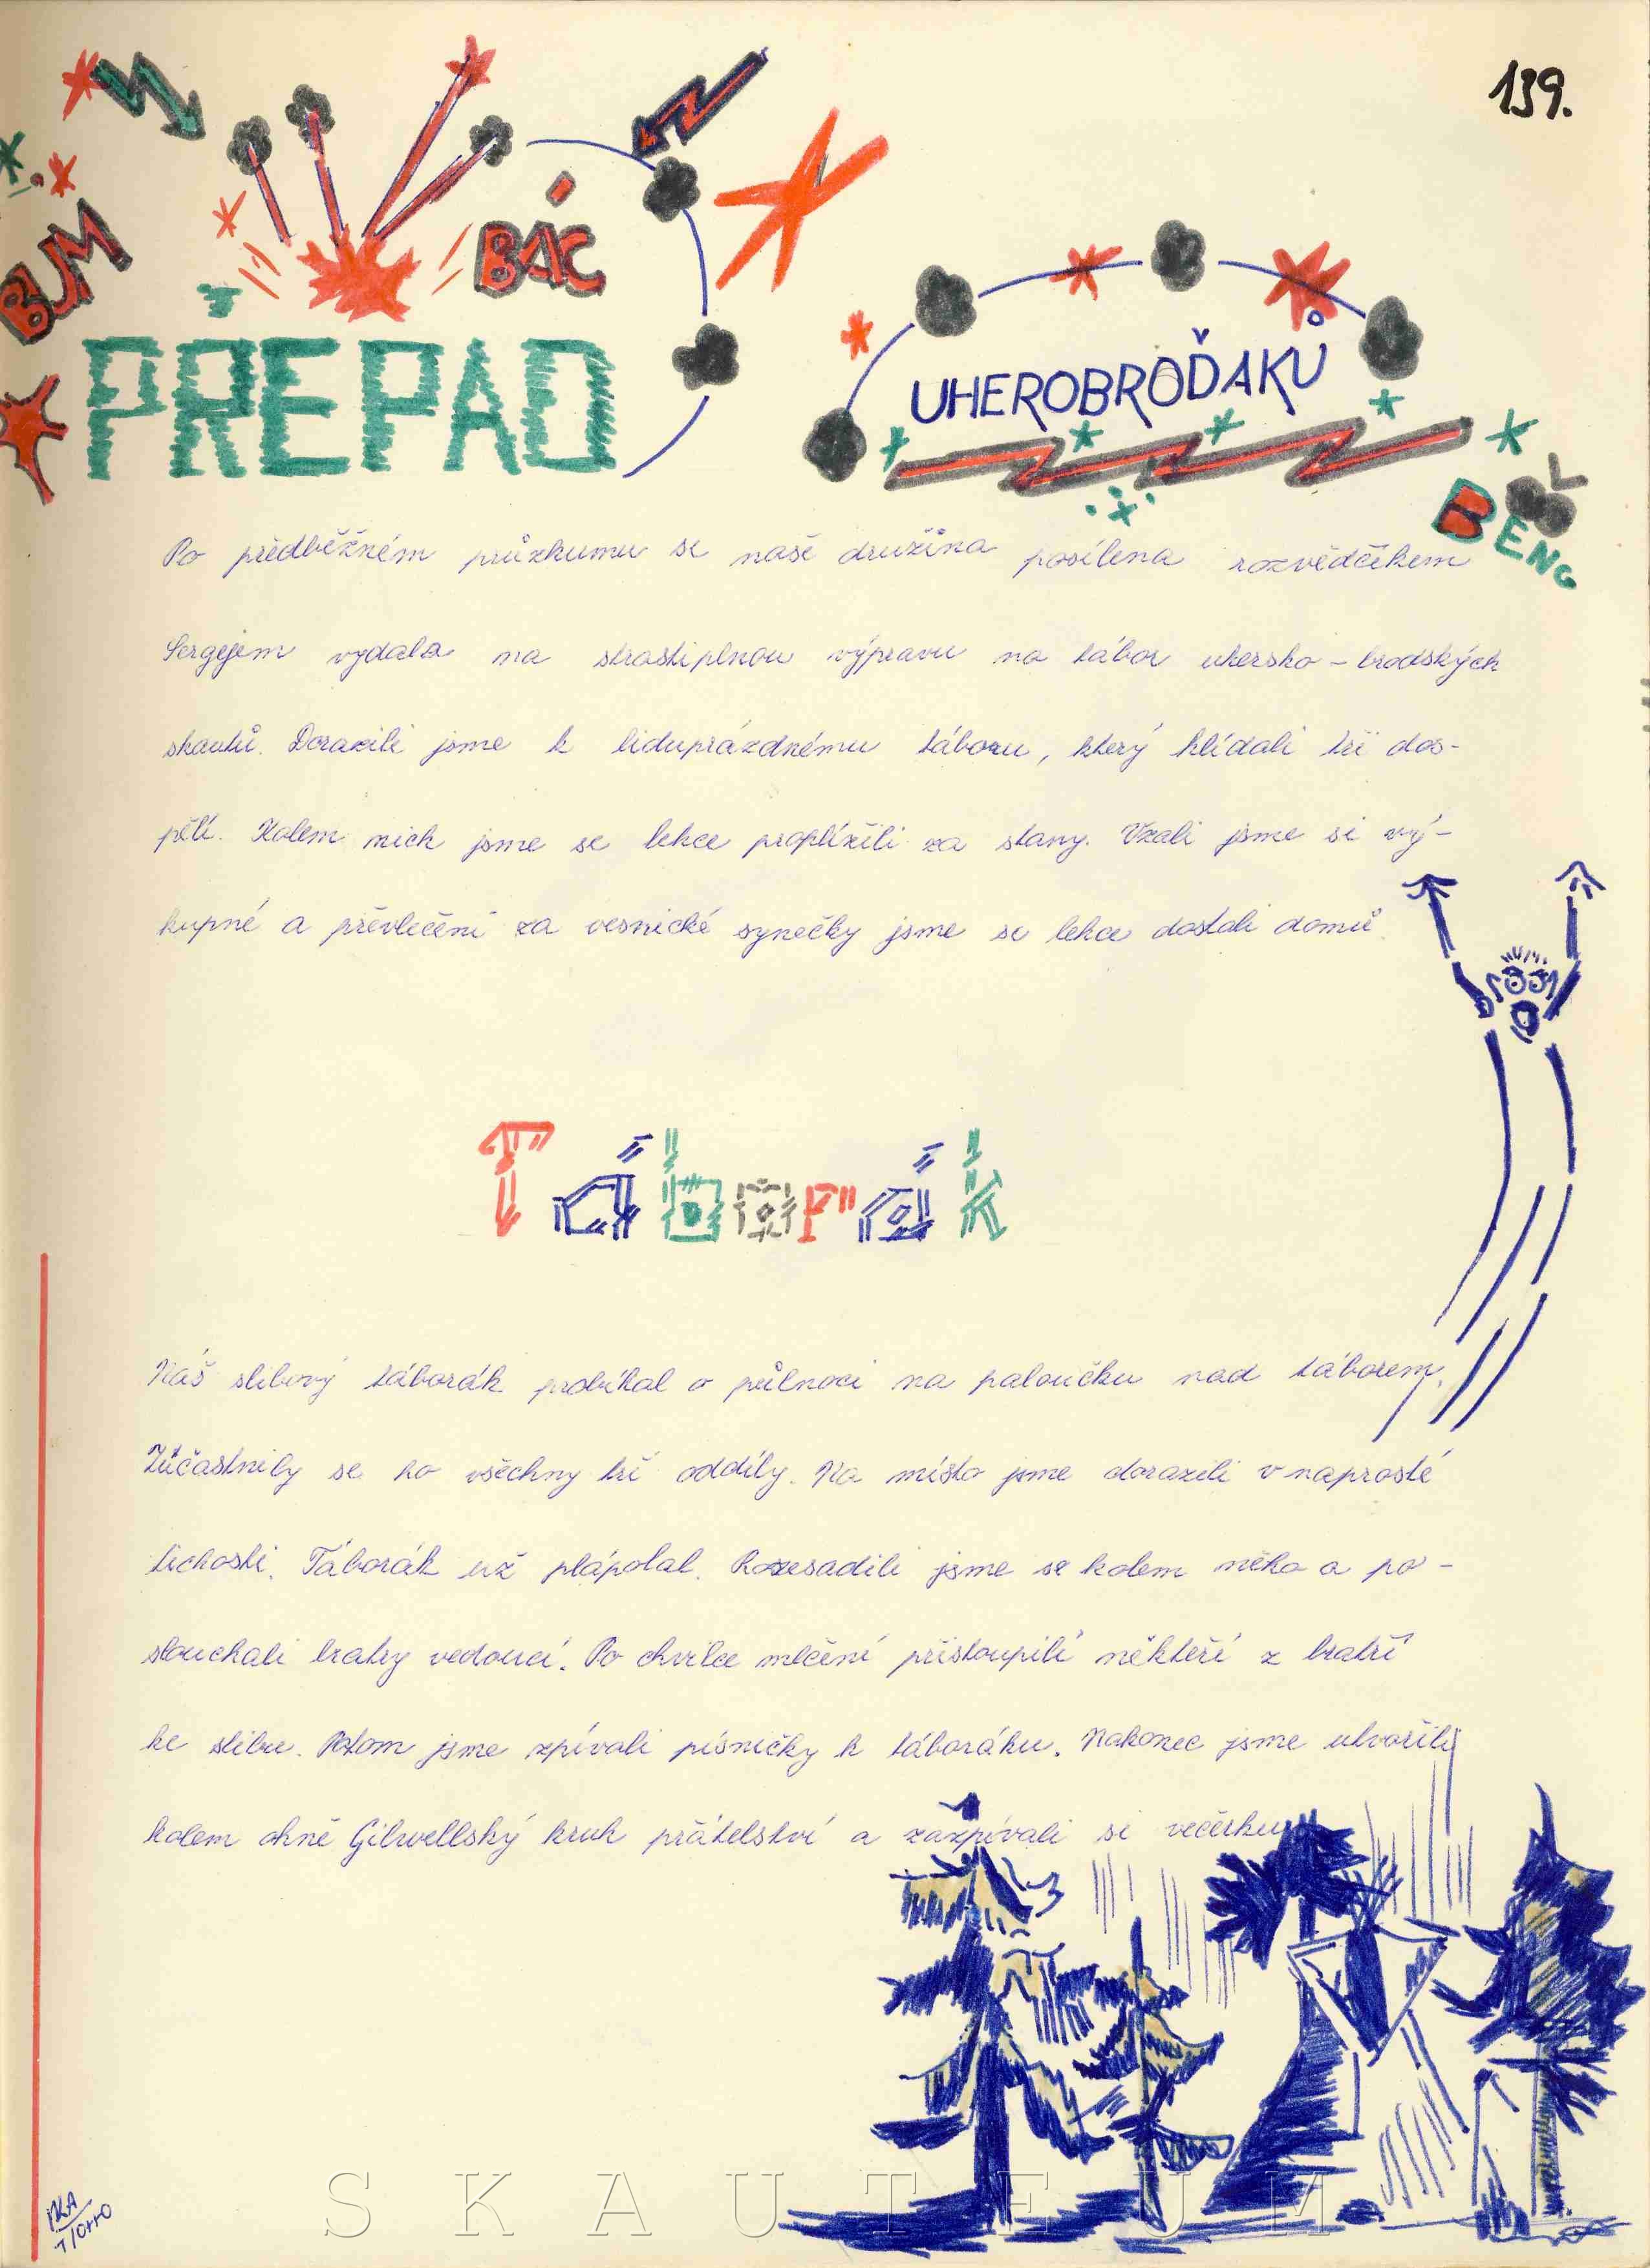 139.
BUM
BÁC
PŘEPAD
UHEROBROĎAKŮ
BENG
Po předběžném průzkumu se naše družina posílena rozvědčíkem
Sergejem vydala na strastiplnou výpravu na tábor uhersko-brodských
skautů. Dorazili jsme k liduprázdnému táboru, který hlídali tři dos-
pělí. Kolem nich jsme se lehce proplížili za stany. Vzali jsme si vý-
kupné a převlečení za vesnické synečky jsme se lehce dostali domů.
Táborák
Náš slibový táborák probíhal o půlnoci na paloučku nad táborem.
Zúčastnily se ho všechny tři oddíly. Na místo jsme dorazili v naprosté
tichosti. Táborák už plápolal. Rozesadili jsme se kolem něho a po-
slouchali bratry vedoucí. Po chvilce mlčení přistoupili někteří z bratří
ke slibu. Potom jsme zpívali písničky k táboráku. Nakonec jsme utvořili
kolem ohně Gilwellský kruh přátelství a zazpívali si večerku.
SKAUTEUM